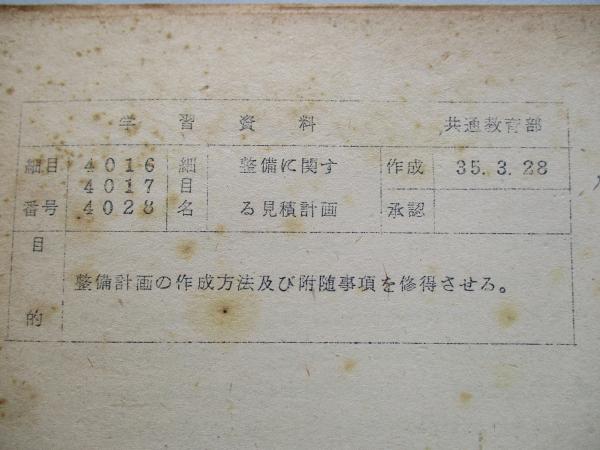 学習資料 共通教育部
細目 4016 細 整備に関す 作成 35.3.28
4017 目
番号 4028 名 る見積計画 承認
目
整備計画の作成方法及び附随事項を修得させる。
的